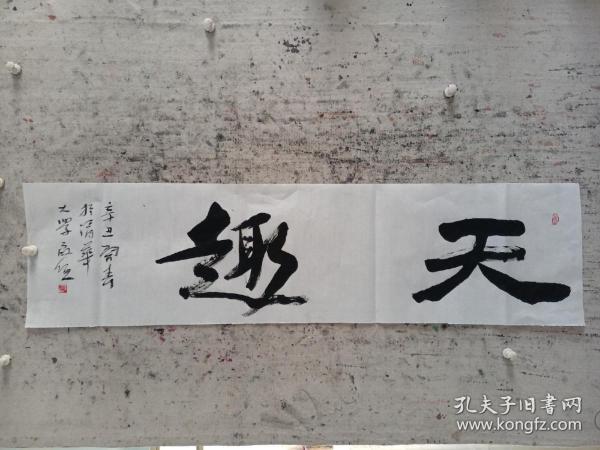 天趣
辛丑
於清華
大學
孔夫子旧書网
www.kongfz.com